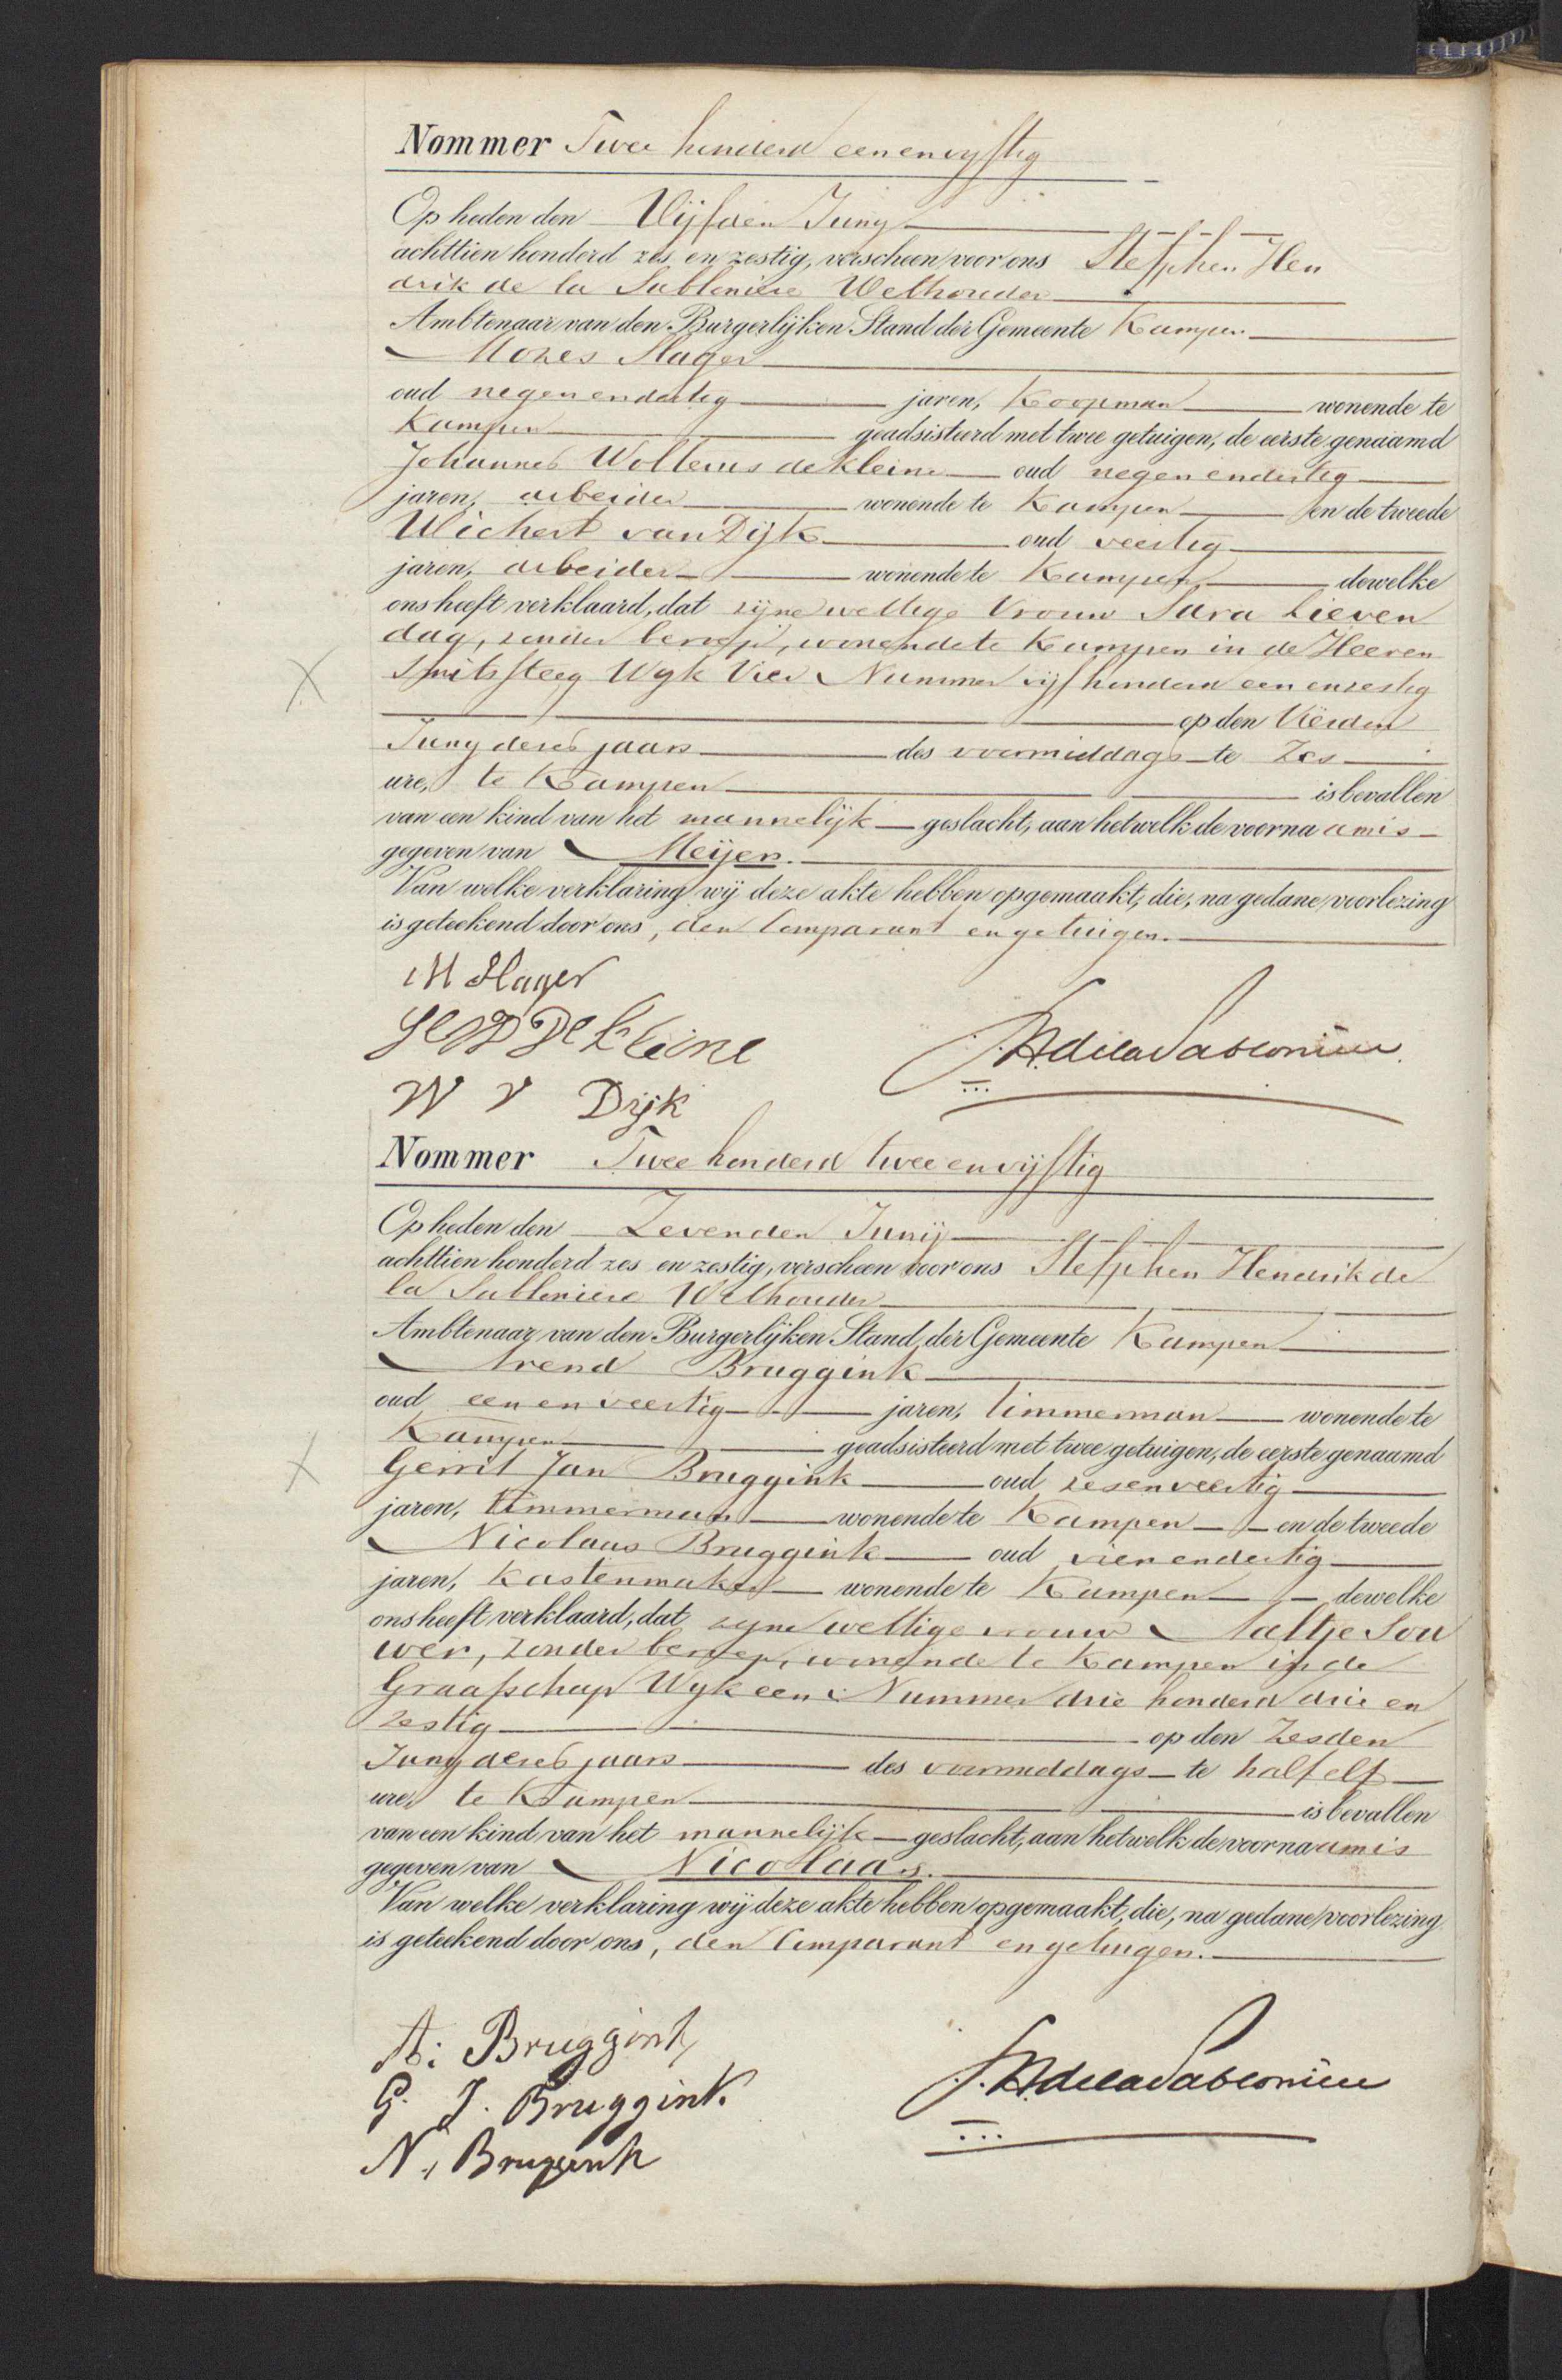 Nommer Twee honderd een en vijftig
Op heden den Vijfden Junij
achttien honderd zes en zestig, verscheen voor ons Stephen Hen
drik de la Sabloniere Wethouder
Ambtenaar van den Burgerlijken Stand der Gemeente Kampen
Mozes Slager
oud negen en dertig jaren, Koopman wonende te
Kampen geadsisteerd met twee getuigen, de eerste genaamd
Johannes Wolterus de Kleine oud negen en dertig
jaren, arbeider wonende te Kampen en de tweede
Wichert van Dijk oud veertig
jaren, arbeider wonende te Kampen dewelke
ons heeft verklaard, dat zijne wettige Vrouw Sara Lieven
dag, zonder beroep, wonende te Kampen in de Heeren
Smitssteeg Wyk Vier Nummer vijf honderd een en zestig
op den Vierden
Juny dezes jaars des voormiddags te Zes
ure, te Kampen is bevallen
van een kind van het mannelijk geslacht, aan hetwelk de voornaam is
gegeven van Meijer.
Van welke verklaring wij deze akte hebben opgemaakt, die, na gedane voorlezing
is geteekend door ons, den Comparant en getuigen.
M Slager
de Kleine
W V Dijk
S.H. de la Sabloniere
Nommer Twee honderd twee en vijftig
Op heden den Zevenden Junij
achttien honderd zes en zestig, verscheen voor ons Stephen Hendrik de
la Sabloniere Wethouder
Ambtenaar van den Burgerlijken Stand der Gemeente Kampen
Arend Bruggink
oud een en veertig jaren, timmerman wonende te
Kampen geadsisteerd met twee getuigen, de eerste genaamd
Gerrit Jan Bruggink oud zes en veertig
jaren, timmerman wonende te Kampen en de tweede
Nicolaas Bruggink oud vier en dertig
jaren, kastenmaker wonende te Kampen dewelke
ons heeft verklaard, dat zyne wettige vrouw Aaltje Sou
wer, zonder beroep, wonende te Kampen in de
Graafschap Wyk een Nummer drie honderd drie en
zestig op den Zesden
Juny dezes jaars des voormiddags te half elf
ure, te Kampen is bevallen
van een kind van het mannelijk geslacht, aan hetwelk de voornaam is
gegeven van Nicolaas.
Van welke verklaring wij deze akte hebben opgemaakt, die, na gedane voorlezing
is geteekend door ons, den Comparant en getuigen.
A: Bruggink
G. J. Bruggink
N. Bruggink
S.H. de la Sabloniere